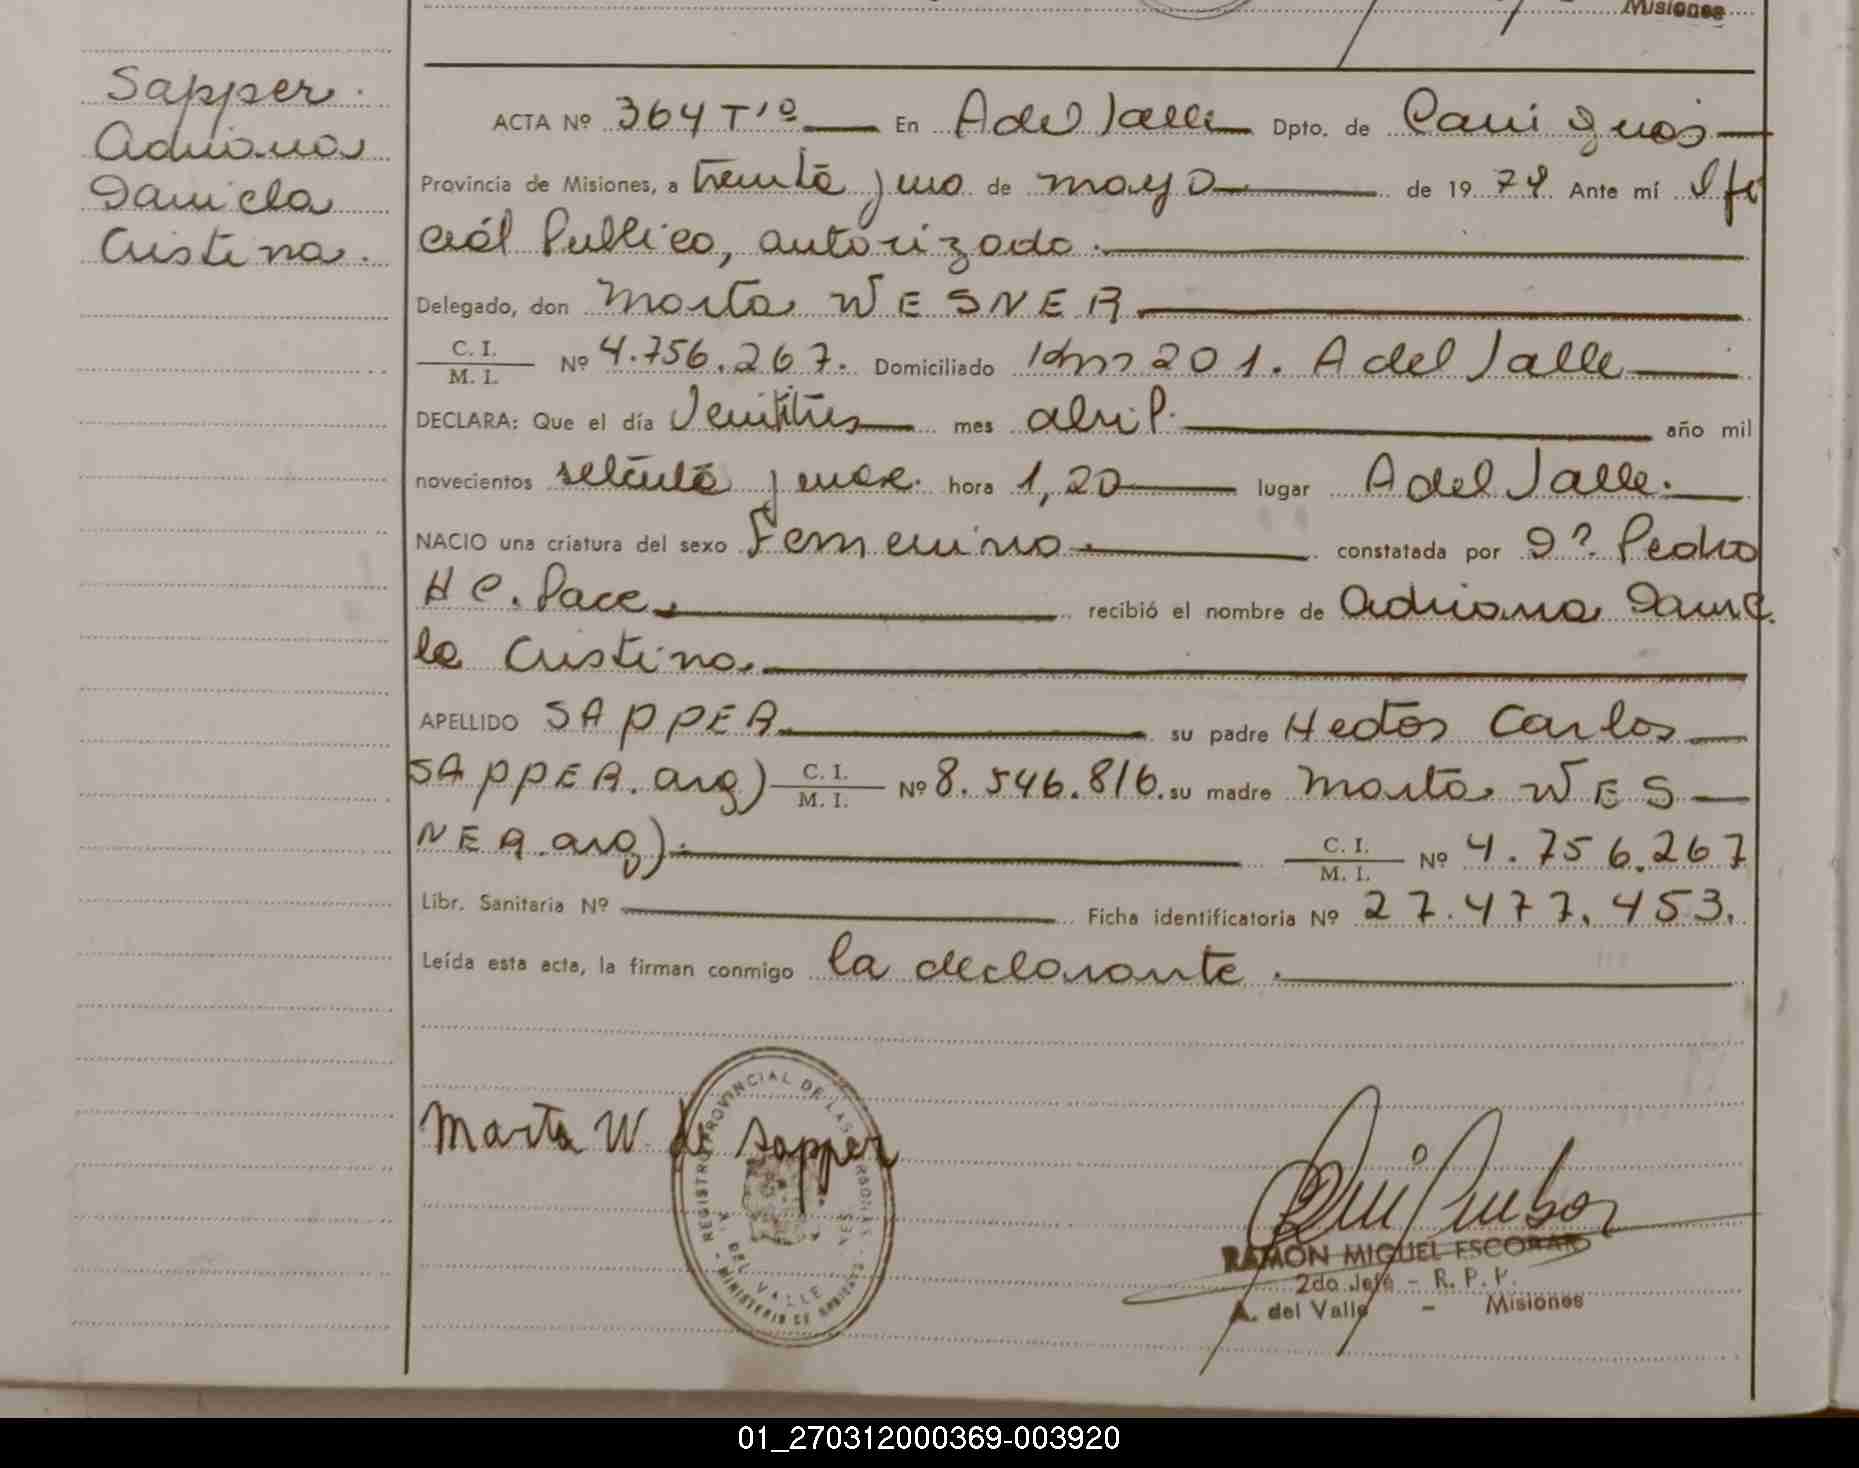 Misiones
Sapper.
Adriana
Daniela
Cristina.
ACTA Nº 364 Tº En A del Valle Dpto. de Cainguas
Provincia de Misiones, a treinta y uno de mayo de 1979 Ante mí Ofi
cial Publico, autorizado.
Delegado, don Marta WESNER
C. I.
M. I. Nº 4.756.267. Domiciliado Km 201. A del Valle
DECLARA: Que el día Veintitrés mes abril año mil
novecientos setenta y nueve. hora 1,20 lugar A del Valle.
NACIO una criatura del sexo Femenino constatada por Dº. Pedro
H C. Pace. recibió el nombre de Adriana Danie
la Cristina.
APELLIDO SAPPER su padre Hector Carlos
SAPPER. arg) C. I.
M. I. Nº 8.546.816. su madre Marta WES
NER. arg). C. I.
M. I. Nº 4.756.267
Libr. Sanitaria Nº Ficha identificatoria Nº 27.477.453.
Leída esta acta, la firman conmigo la declarante.
Marta W. de Sapper
REGISTRO PROVINCIAL DE LAS PERSONAS
A. DEL VALLE
RAMON MIGUEL ESCOBAR
2do Jefe - R. P. P.
A. del Valle - Misiones
01_270312000369-003920